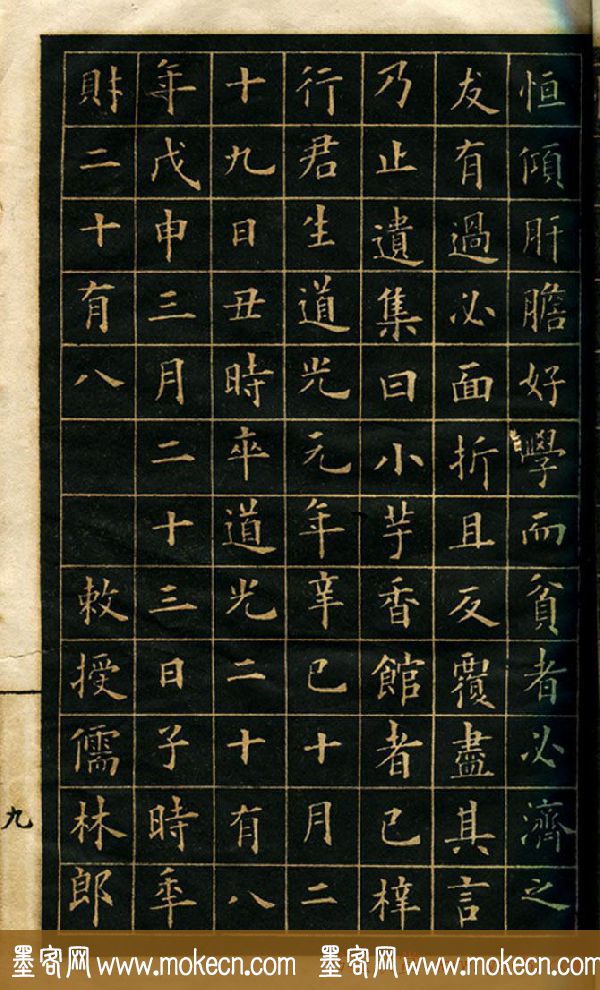 恒傾肝膽好學而貧者必濟之
友有過必面折且反覆盡其言
乃止遺集曰小芋香館者已梓
行君生道光元年辛巳十月二
十九日丑時卒道光二十有八
年戊申三月二十三日子時年
財二十有八　　敕授儒林郎
九
墨客网 www.mokecn.com 墨客网 www.mokecn.com